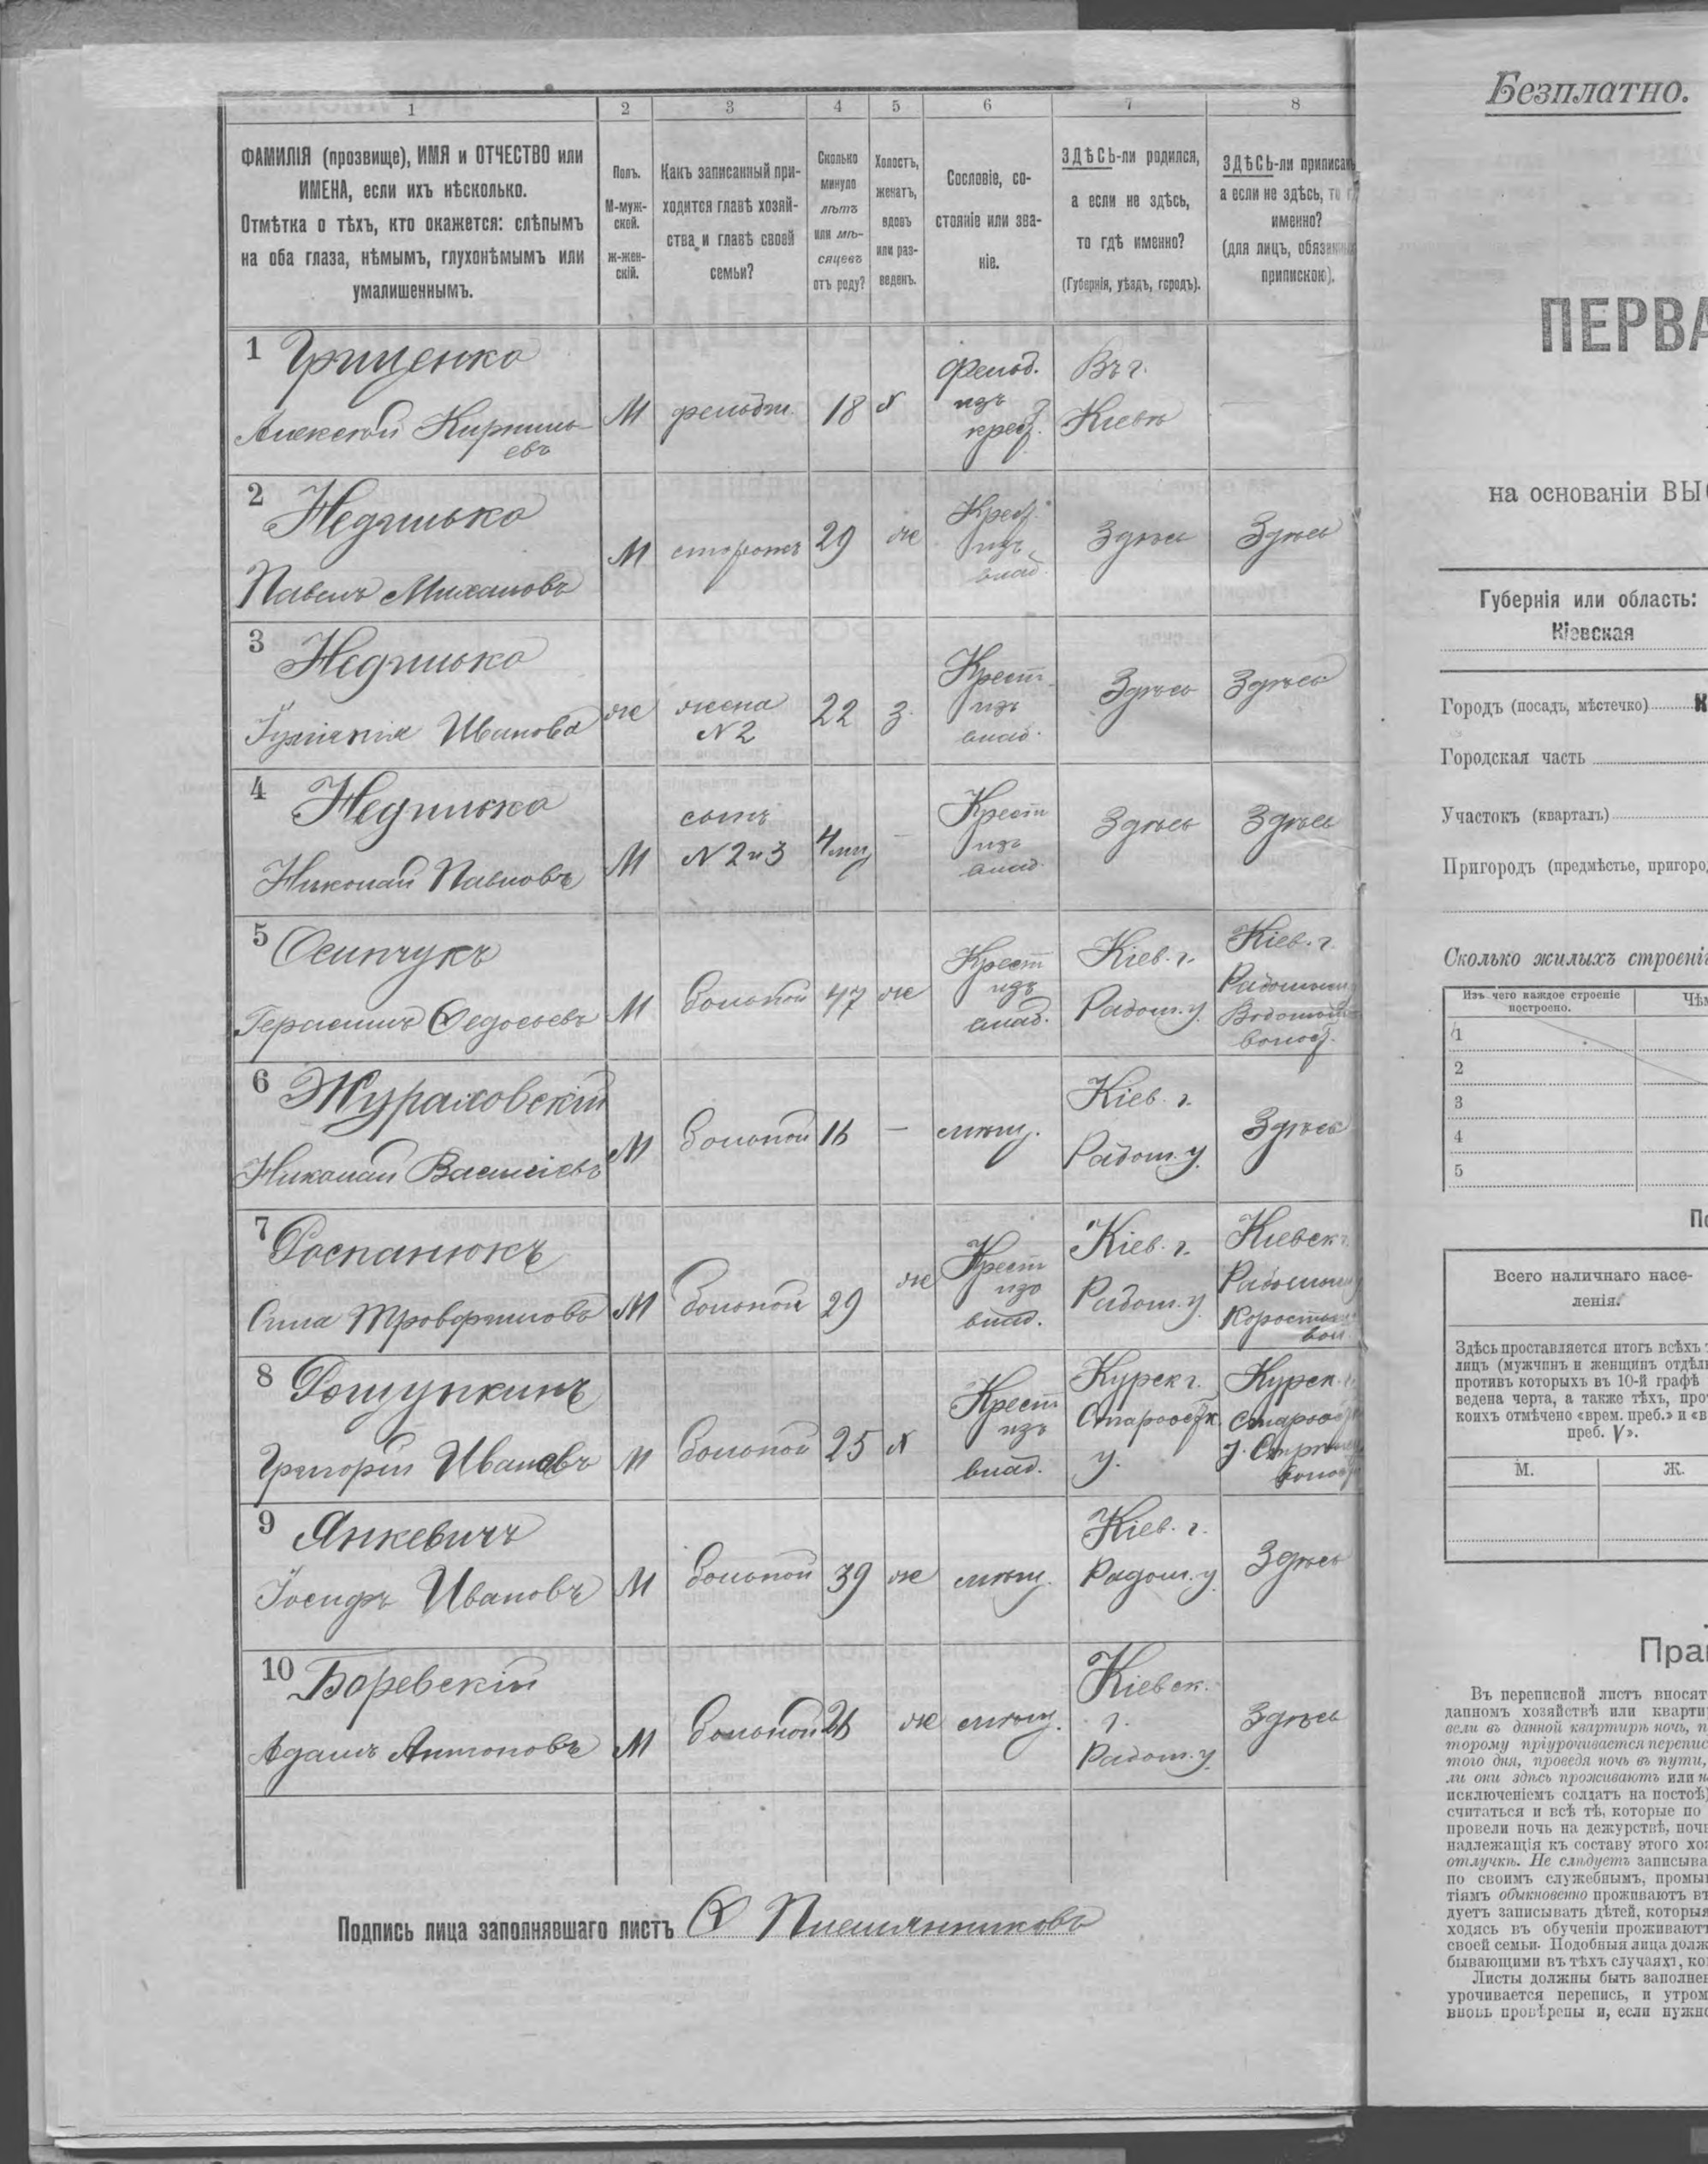 1 2 3 4 5 6 7 8
ФАМИЛІЯ (прозвище), ИМЯ и ОТЧЕСТВО или
ИМЕНА, если ихъ нѣсколько.
Отмѣтка о тѣхъ, кто окажется: слѣпымъ
на оба глаза, нѣмымъ, глухонѣмымъ или
умалишеннымъ.
Полъ.
М-муж-
ской.
ж-жен-
скій.
Какъ записанный при-
ходится главѣ хозяй-
ства и главѣ своей
семьи?
Сколько
минуло
лѣтъ
или мѣ-
сяцевъ
отъ роду?
Холостъ,
женатъ,
вдовъ
или раз-
веденъ.
Сословіе, со-
стояніе или зва-
ніе.
ЗДѢСЬ-ли родился,
а если не здѣсь,
то гдѣ именно?
(Губернія, уѣздъ, городъ).
ЗДѢСЬ-ли приписанъ
а если не здѣсь, то г
именно?
(для лицъ, обязанн
припискою).
1 Грищенко
Алексѣй Кирилл
евъ
М
фельдш.
18
х
фельд.
изъ
крест.
Въ г.
Кіевѣ
2 Недилько
Павелъ Михаиловъ
М
сторожъ
29
же
Крест.
изъ
влад.
Здѣсь
Здѣсь
3 Недилько
Иванова
же
жена
N 2
22
з.
Крест.
изъ
влад.
Здѣсь
Здѣсь
4 Недилько
Николай Павловъ
М
сынъ
N 2 и 3
4 мц
—
Крест
изъ
влад.
Здѣсь
Здѣсь
5 Осипчукъ
Герасимъ Ѳедосѣевъ
М
больной
47
же
Крест
изъ
влад.
Кіев. г.
Радом. у.
Кіев. г.
Радомы
волост.
6 Жураховскій
Николай Василіевъ
М
больной
16
—
мѣщ.
Кіев. г.
Радом. у.
Здѣсь
7 Роспанюкъ
Сила Трофимовъ
М
больной
29
же
Крест
изъ
влад.
Кіев. г.
Радом. у.
Кіевск г.
Радомы
Коросты
вол.
8 Рощупкинъ
Григорій Ивановъ
М
больной
25
х
Крест
изъ
влад.
Курск г.
Староск.
у.
Курск. г.
Староос
у.
волост
9 Янкевичъ
Іосифъ Ивановъ
М
больной
39
же
мѣщ.
Кіев. г.
Радом. у.
Здѣсь
10 Боревскій
Адамъ Антоновъ
М
больной
26
же
мѣщ.
Кіевск.
г.
Радом. у.
Здѣсь
Подпись лица заполнявшаго листъ Ѳ Племянниковъ
Безплатно.
ПЕРВА
на основаніи ВЫ
Губернія или область:
Кіевская
Городъ (посадъ, мѣстечко) К
Городская часть
Участокъ (кварталъ)
Пригородъ (предмѣстье, пригоро
Сколько жилыхъ строені
Изъ чего каждое строеніе
построено.
Чѣ
1
2
3
4
5
По
Всего наличнаго насе-
ленія.
Здѣсь проставляется итогъ всѣхъ
лицъ (мужчинъ и женщинъ отдѣл
противъ которыхъ въ 10-й графѣ
ведена черта, а также тѣхъ, про
коихъ отмѣчено «врем. преб.» и «в
преб. V».
М. Ж.
Пра
Въ переписной листъ вносят
данномъ хозяйствѣ или кварти
вели въ данной квартирѣ ночь, п
торому пріурочивается перепис
того дня, проведя ночь въ пути,
ли они здѣсь проживаютъ или н
исключеніемъ солдатъ на постоѣ)
считаться и всѣ тѣ, которые по
провели ночь на дежурствѣ, ноч
надлежащія къ составу этого хо
отлучкѣ. Не слѣдуетъ записыва
по своимъ служебнымъ, промы
тіямъ обыкновенно проживаютъ въ
дуетъ записывать дѣтей, которыя
ходясь въ обученіи проживают
своей семьи. Подобныя лица долж
бывающими въ тѣхъ случаяхъ, ко
Листы должны быть заполне
урочивается перепись, и утром
вновь провѣрены и, если нужн